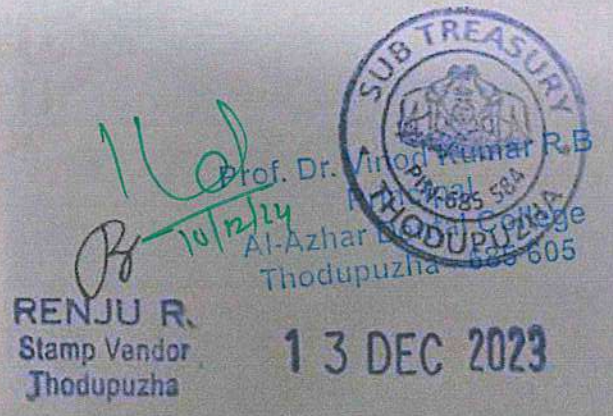 SUB TREASURY
PIN-685 584
THODUPUZHA
Prof. Dr. Vinod Kumar R.B
Principal
Al-Azhar Dental College
Thodupuzha - 685 605
10/12/24
RENJU R.
Stamp Vendor
Thodupuzha
13 DEC 2023